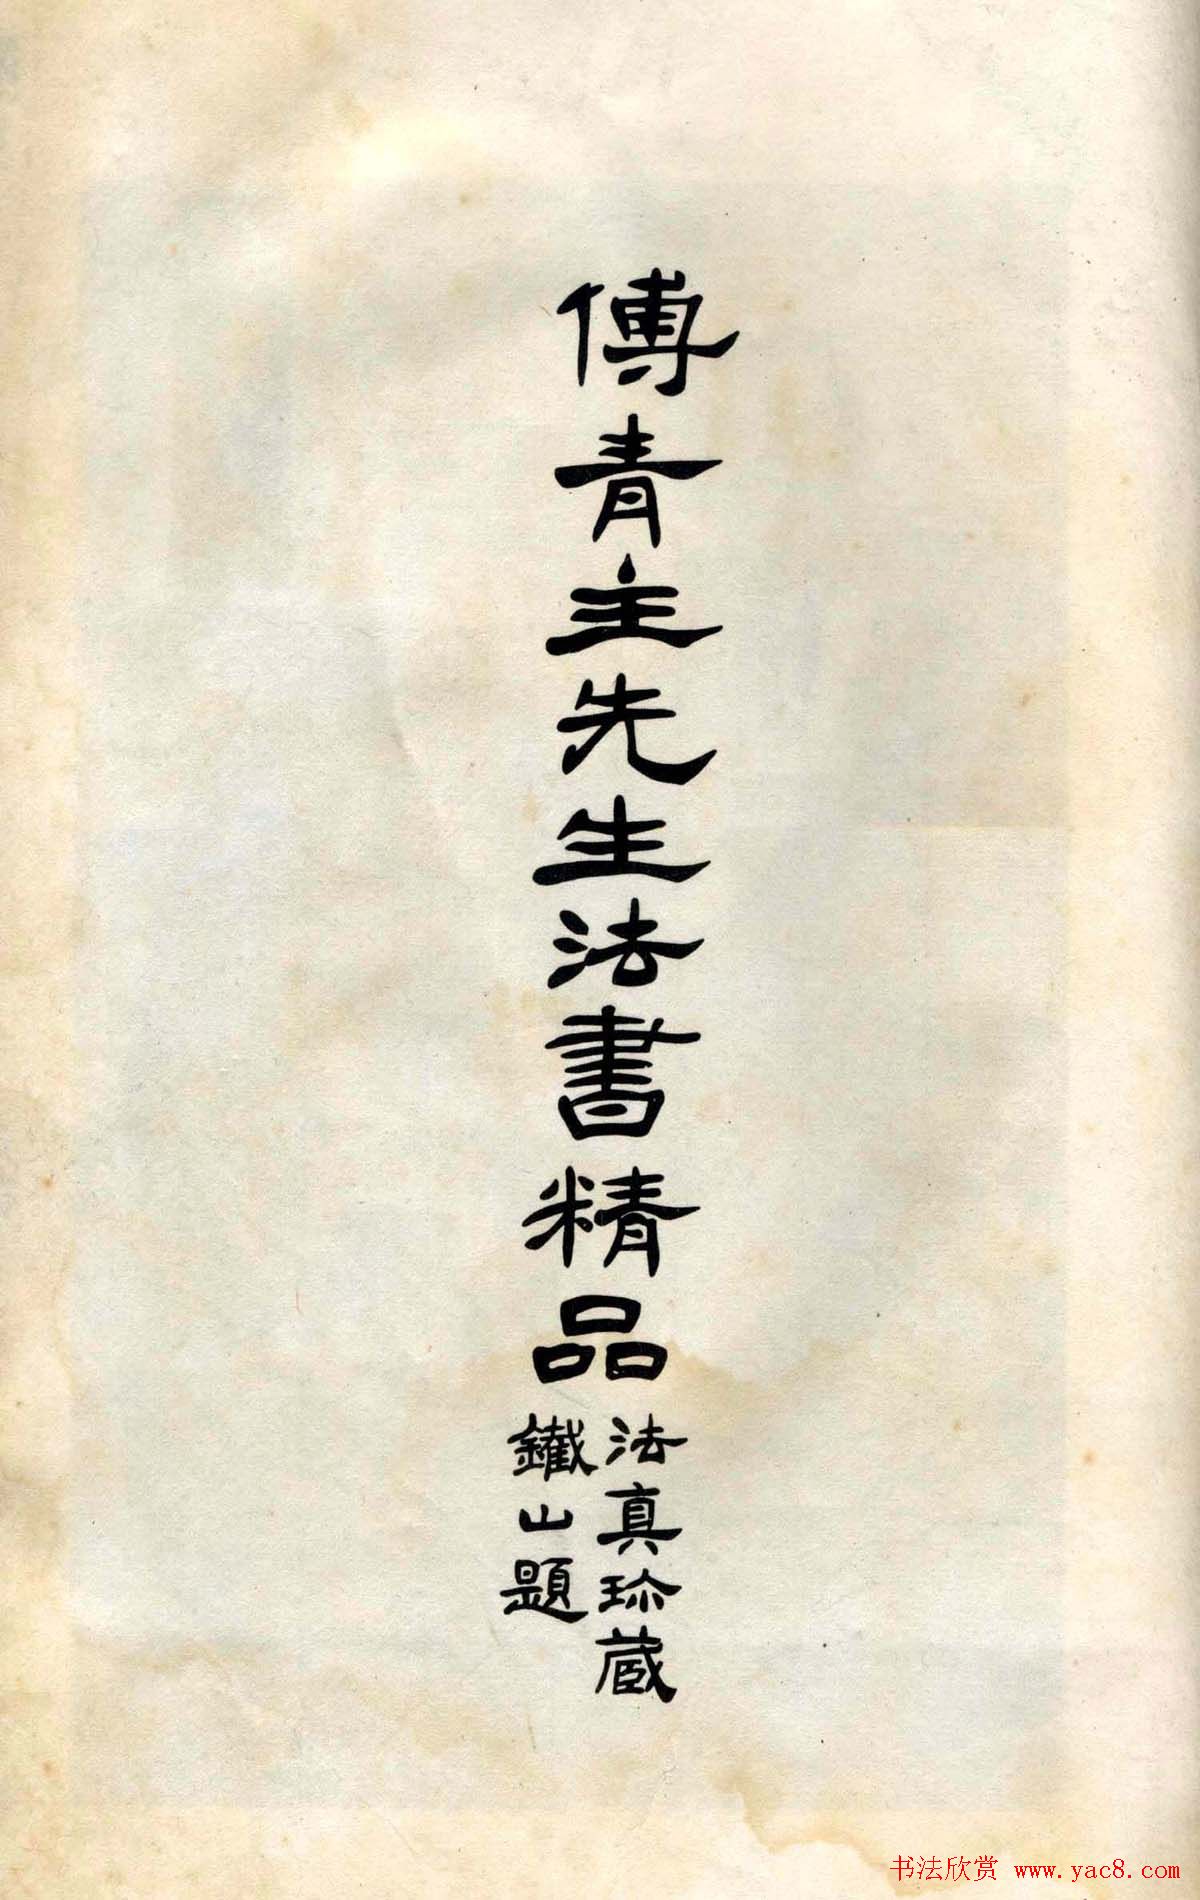 傅青主先生法書精品
法真珎蔵
鐵山題
书法欣赏 www.yac8.com